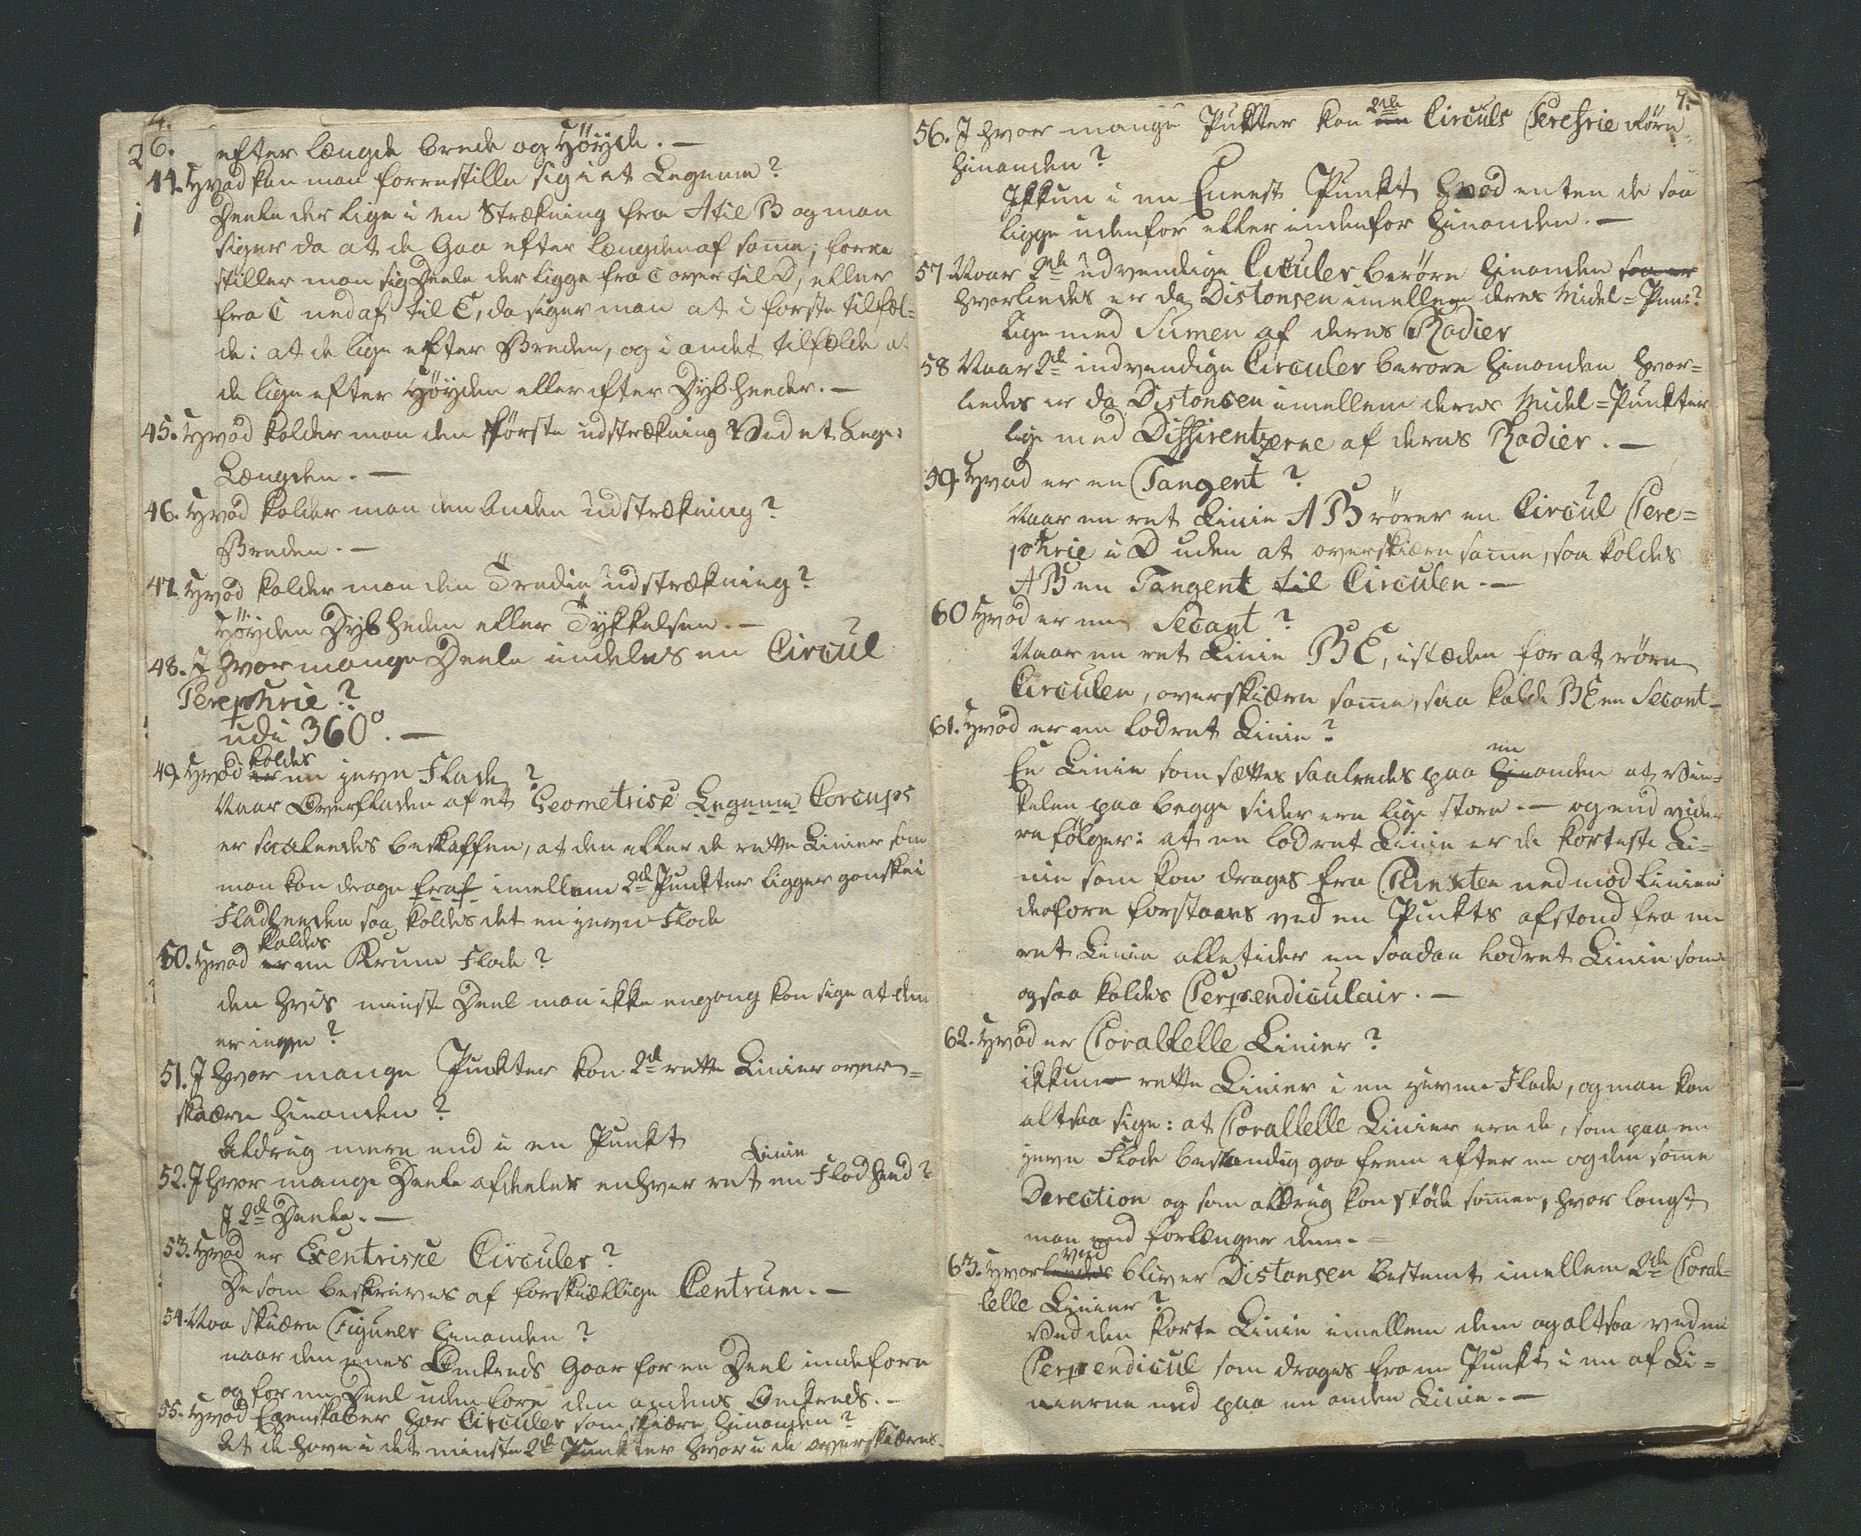 6.
efter længde brede og Höyde. —
44. Hvad kan man forrestille sig i et Legeme?
Deele der lige i en Strækning fra A til B og man
siger da at de Gaa efter Længden af samme; forre
stiller man sig Deele der ligge fra C over til D, eller
fra C ned af til E, da siger man at i første tilfæl=
de: at de lige efter Breden, og i andet tilfælde at
de lige efter Höyden eller efter Dybheeder. —
45. Hvad kalder man den første udstrækning Ved et Lege:
Længden. —
46. Hvad kalder man den Anden udstrækning?
Breden. —
47. Hvad kalder man den Tredie udstrækning?
Höyden Dybheden eller Tykkelsen. —
48. I hvor mange Deele indeles en Circul
Perephrie?
udi 360°. —
49. Hvad er kaldes en jevn Flade?
Naar Overfladen af et Geometrisk Legeme Corcups
er saaleedes beskaffen, at den eller de rette Linier som
man kan drage heraf imellem 2de Punkter ligger ganske i
Fladheeden saa kaldes det en jevn Flade
50. Hvad er kaldes en Krum Flade?
den hvis minste Deel man ikke engang kan sige at den
er jevn?
51. I hvor mange Punkter kan 2de rette Linier over=
skære hinanden?
Aldrig mere end i en Punkt
52. I hvor mange Deele afdeeler enhver ret Linie en Fladheed?
I 2de Deele. —
53. Hvad er Exentriske Circuler?
De som beskrives af forskiællige Centrum. —
54. Naa skiære Figurer hinanden?
naar den enes Omkreds Gaar for en Deel indeforre
og for en Deel udenfore den andens Omkreds. —
55. Hvad Egenskaber har Circuler som skiære hinanden?
At de have i det minste 2de Punkter hvor i de overskiæres.
7.
56. I hvor mange Punkter kan en 2de Circuls Perefrie Røre
hinanden?
Ikkun i en Eneest Punkt hvad enten de saa
ligge udenfor eller indenfor hinanden. —
57 Naar 2de udvendige Circuler berøre hinanden saa er
hvorledes er da Distansen imellem deres Midel=Pun:?
lige med Sumen af deres Radier
58 Naar 2de indvendige Circuler berøre hinanden hvor=
ledes er da Distansen imellem deres Midel=Punkter
lige med Diffirentzerne af deres Radier. —
59. Hvad er en Tangent?
Naar en ret Linie AB rører en Circul Pere=
phrie i D uden at overskiære samme, saa kaldes
AB en Tangent til Circulen. —
60 Hvad er en Secant?
Naar en ret Linie BE, istæden for at røre
Circulen, overskiære samme, saa kalde BE en Secant—
61. Hvad er en lodret Linie?
En Linie som sættes saaledes paa hinanden en at Vin=
kelen paa begge sider ere lige store. — og end vide
re følger: at en lodret Linie er de korteste Li=
nie som kan drages fra Punkten ned mod Linien
deforre forstaaes ved en Punkts afstand fra en
ret Linie alletider en saadan lodret Linie som
ogsaa kaldes Perpendiculair. —
62. Hvad er Paralelle Linier?
ikkun rette Linier i en jevne Flade, og man kan
altsaa sige: at Parallelle Linier ere de, som paa en
jevn Flade bestandig gaa frem efter en og den samme
Derection og som aldrig kan støde sammen, hvor langt
man end forlænger dem. —
63. Hvorledes ved bliver Distansen bestemt imellem 2de Paral=
lelle Linier?
Ved den korte Linie imellem dem og altsaa ved en
Perpendicul som drages fra en Punkt i en af Li=
nierne ned paa en anden Linie. —